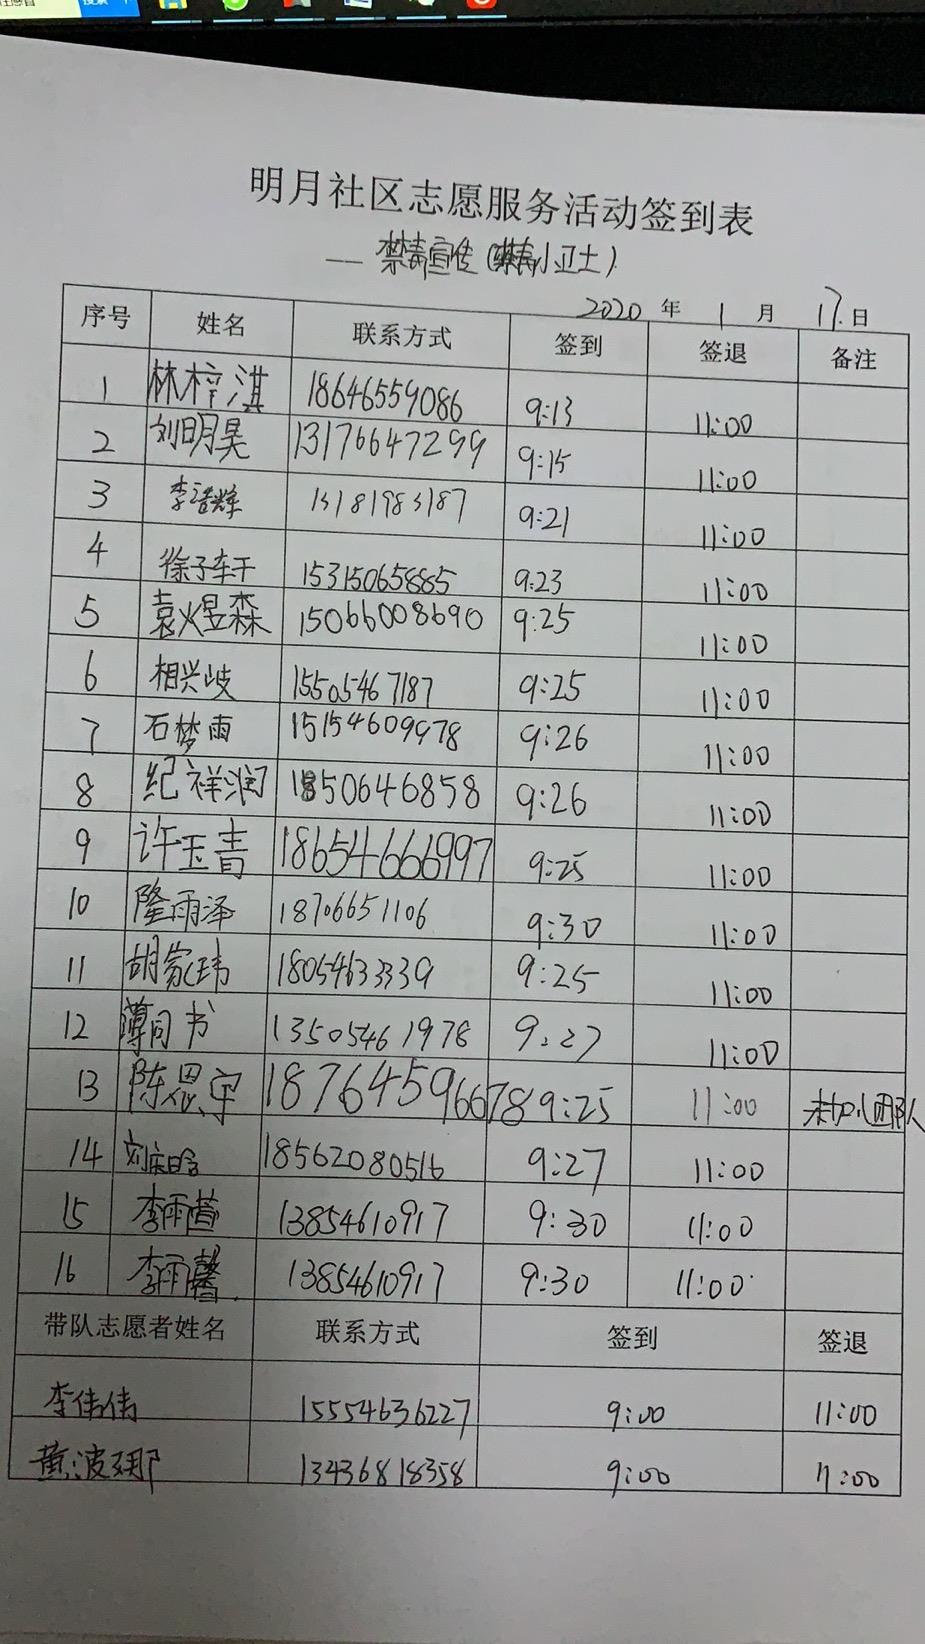 明月社区志愿服务活动签到表
— 禁毒宣传(禁毒小卫士)
2020 年 1 月 17 日
序号 姓名 联系方式 签到 签退 备注
1 林梓淇 18646559086 9:13 11:00
2 刘明昊 13176647299 9:15 11:00
3 李浩辉 13181983187 9:21 11:00
4 徐子轩 15315065885 9:23 11:00
5 袁煜森 15066008690 9:25 11:00
6 相兴岐 15505467187 9:25 11:00
7 石梦雨 15154609978 9:26 11:00
8 纪祥润 1850646858 9:26 11:00
9 许玉青 18654666997 9:25 11:00
10 隆雨泽 18706651106 9:30 11:00
11 胡家玮 18054633339 9:25 11:00
12 薄同书 13505461978 9:27 11:00
13 陈思宇 18764596678 9:25 11:00 未加入团队
14 18562080516 9:27 11:00
15 李雨萱 13854610917 9:30 11:00
16 李雨馨 13854610917 9:30 11:00
带队志愿者姓名 联系方式 签到 签退
李伟伟 15554636227 9:00 11:00
黄波娜 13436818358 9:00 11:00